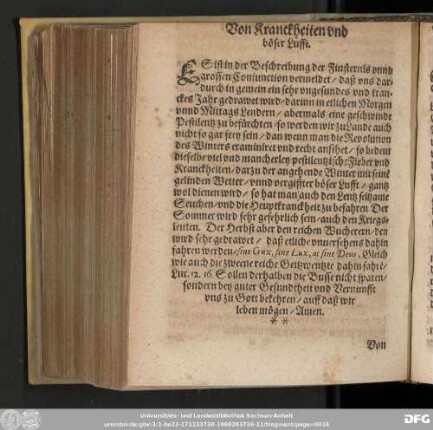 Von Kranckheiten vnd
böser Lufft.
ES ist in der Beschreibung der Finsternis vnnd
grossen Coniunction vermeldet / daß vns dar-
durch in gemein ein sehr vngesundes vnd kran-
ckes Jahr gedrawet wird / darinn in etlichen Morgen
vnnd Mittags Lendern / abermals eine geschwinde
Pestilentz zu befürchten / so werden wir zu Lande auch
nicht so gar frey sein / dan wenn man die Revolution
des Winters examiniret vnd recht ansihet / so bedeut
dieselbe viel vnd mancherley pestilentzische Fieber vnd
Kranckheiten / darzu der angehende Winter mit seinē
gelinden Wetter / vnnd vergiffter böser Lufft / gantz
wol dienen wird / so hat man auch den Lentz seltzame
Seuchen / vnd die Heuptkranckheit zu befahren Der
Sommer wird sehr gefehrlich sein / auch den Kriegs-
leuten. Der Herbst aber den reichen Wucherern / den
wird sehr gedrawet / daß etliche vnuersehens dahin
fahren werden / sine Crux, sine Lux, ac sine Deus. Gleich
wie auch die zweene reiche Geitzwentze dahin fahrē /
Luc. 12. 16. Sollen derhalben die Busse nicht sparen /
sondern bey guter Gesundtheit vnd Vernunfft
vns zu Gott bekehren / auff daß wir
leben mögen / Amen.
* *
Von
Universitäts- und Landesbibliothek Sachsen-Anhalt
DFG